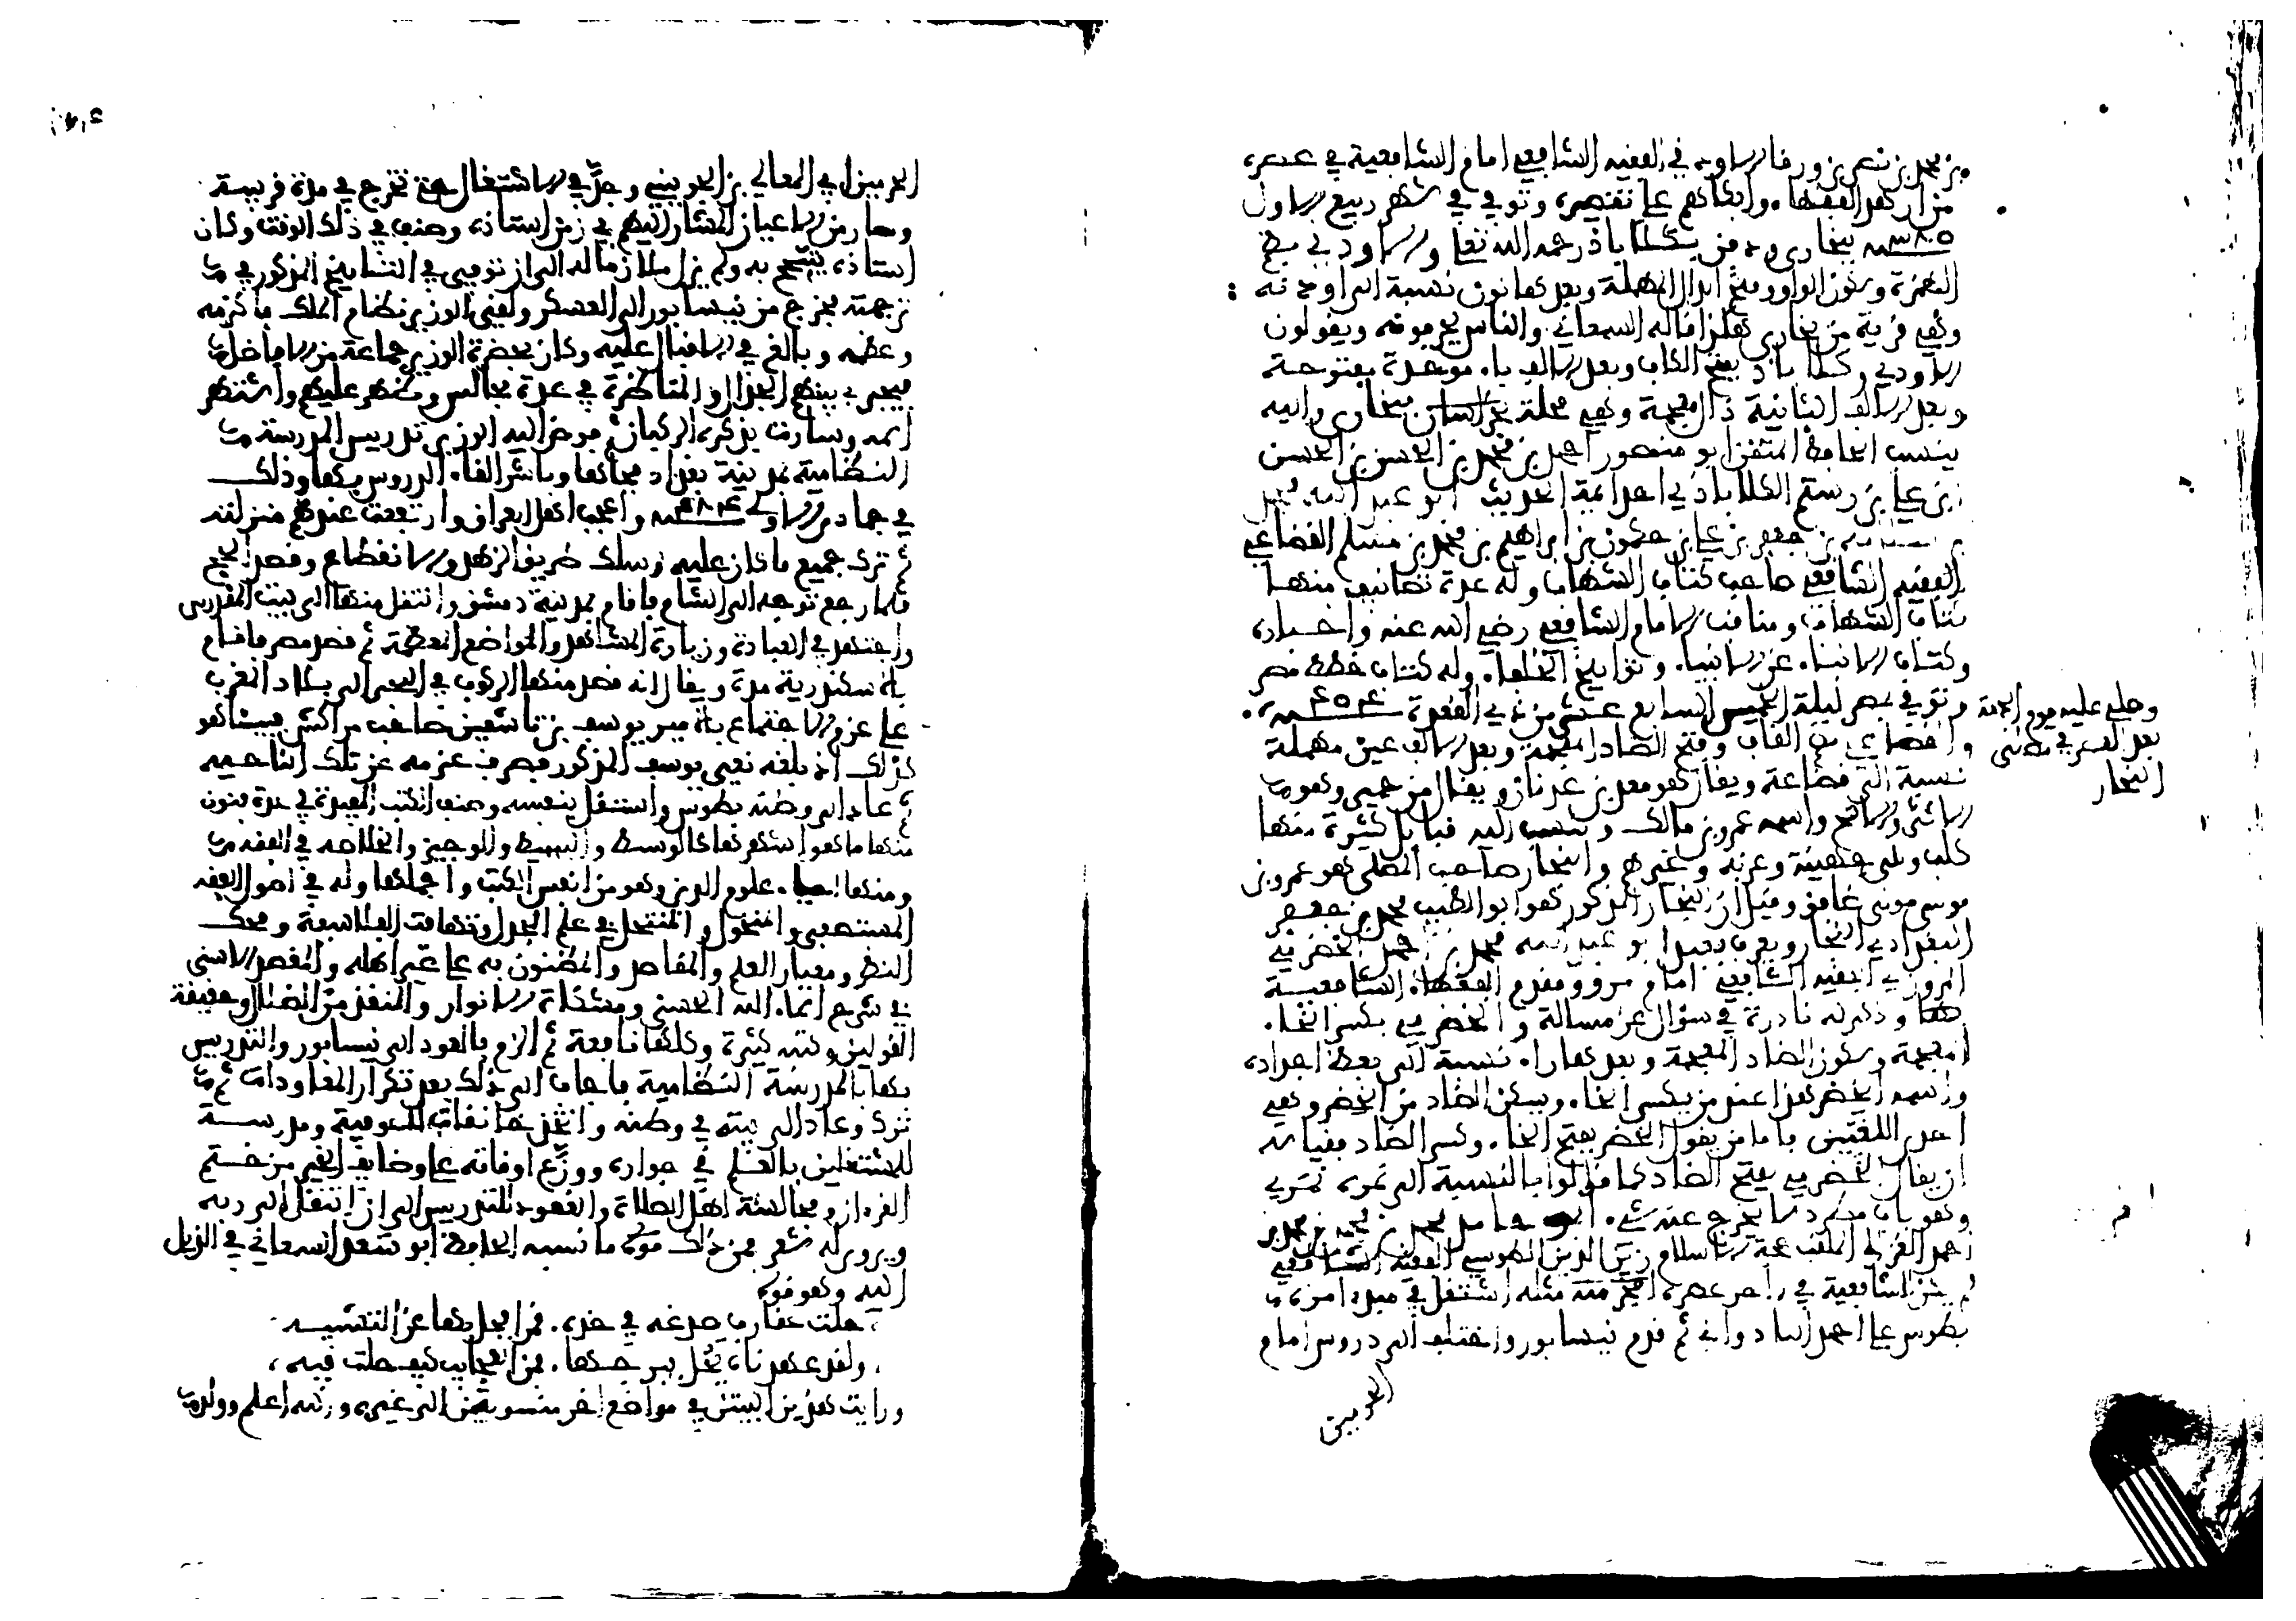 بن محمد بن نصر بن ورقا الاودني الفقيه الشافعي امام الشافعية في عصره
من ازهد الفقها وابكاهم على تقصيره وتوفي في شهر ربيع الاول
سنة ٣٨٥ ببخارى ودفن بكلاباذ رحمه الله تعا والاودني بضم
الهمزة وسكون الواو وفتح الدال المهملة وبعدها نون نسبة الى اودنه
وهي قرية من بخارى هكذا قاله السمعاني والناس يحرفونه ويقولون
الاودني وكلاباذ بفتح الكاف وبعد الالف باء موحدة مفتوحة
وبعد الالف الثانية ذال معجمة وهي محلة ببخارى واليه
ينسب الحافظ المتقن ابو منصور احمد بن محمد بن الحسن بن الحسن
بن علي بن رستم الكلاباذي احد ائمة الحديث ابو عبد الله محمد
بن سلامه بن جعفر بن علي بن حكمون بن ابراهيم بن محمد بن مسلم القضاعي
الفقيه الشافعي صاحب كتاب الشهاب وله عدة تصانيف منها
كتاب الشهاب ومناقب الامام الشافعي رضي الله عنه واخباره
وكتاب الانباء عن الانبياء وتواريخ الخلفاء وله كتاب خطط مصر
وتوفي بمصر ليلة الخميس السابع عشر من ذي القعدة سنة ٤٥٤
وصلى عليه يوم الجمعة
بعد العصر في مصلى
النجار
والقضاعي بضم القاف وفتح الضاد المعجمة وبعد الالف عين مهملة
نسبة الى قضاعة ويقال هو معد بن عدنان ويقال من حمير وهو
الاشهر والاصح واسمه عمرو بن مالك وينسب اليه قبايل كثيرة منها
كلب وبلي وجهينة وعذره وغيرهم والنجار صاحب المصلى هو عمرو بن
موسى مولى غافق وقيل ان النجار المذكور هو ابو الطيب محمد بن جعفر
البغدادي النجار ويعرف بغندر ابو عبد الله محمد بن احمد الخضري
المروزي الفقيه الشافعي امام مرو ومقدم الفقهاء الشافعية
بها وذكر له نادرة في سؤال عن مسالة والخضري بكسر الخاء
المعجمة وسكون الضاد المعجمة وبعدها راء نسبة الى بعض اجداده
واسمه الخضر هذا عند من يكسر الخاء ويسكن الضاد من الخضر وهي
احدى اللغتين فاما من يقول الخضر بفتح الخاء وكسر الضاد فقياسه
ان يقال الخضري بفتح الضاد كما قالوا بالنسبة الى نمره نمري
وهو باب مطرد لا يخرج عنه شيء ابو حامد محمد بن محمد بن محمد بن
احمد الغزالي الملقب حجة الاسلام زين الدين الطوسي الفقيه الشافعي
لم يكن للشافعية في اخر عصره مثله اشتغل في مبدا امره
بطوس على احمد الراذكاني ثم قدم نيسابور واختلف الى دروس امام
الحرمين
الحرمين ابي المعالي بن الجويني وجد في الاشتغال حتى تخرج في مدة قريبة
وصار من الاعيان المشار اليهم في زمن استاذه وصنف في ذلك الوقت وكان
استاذه يتبجح به ولم يزل ملازما له الى ان توفي في التاريخ المذكور في
ترجمته فخرج من نيسابور الى العسكر ولقي الوزير نظام الملك فاكرمه
وعظمه وبالغ في الاقبال عليه وكان بحضرة الوزير جماعة من الافاضل
فجرى بينهم الجدال والمناظرة في عدة مجالس وظهر عليهم واشتهر
اسمه وسارت بذكره الركبان ثم فوض اليه الوزير تدريس المدرسة
النظامية بمدينة بغداد فجاءها وباشر القاء الدروس بها وذلك
في جمادى الاولى سنة ٤٨٤ واعجب اهل العراق وارتفعت عندهم منزلته
ثم ترك جميع ما كان عليه وسلك طريق الزهد والانقطاع وقصد الحج
فلما رجع توجه الى الشام فاقام بمدينة دمشق وانتقل منها الى بيت المقدس
واجتهد في العبادة وزيارة المشاهد والمواضع المعظمة ثم قصد مصر فاقام
بالاسكندرية مدة ويقال انه قصد منها الركوب في البحر الى بلاد المغرب
على عزم الاجتماع بالامير يوسف بن تاشفين صاحب مراكش فبينما هو
كذلك اذ بلغه نعي يوسف المذكور فصرف عزمه عن تلك الناحيه
ثم عاد الى وطنه بطوس واشتغل بنفسه وصنف الكتب المفيدة في عدة فنون
منها ما هو اشهرها كالوسط والبسيط والوجيز والخلاصه في الفقه
ومنها احياء علوم الدين وهو من انفس الكتب واجملها وله في اصول الفقه
المستصفى والمنخول والمنتحل في علم الجدل وتهافت الفلاسفة ومحك
النظر ومعيار العلم والمقاصد والمضنون به على غير اهله والمقصد الاسنى
في شرح اسماء الله الحسنى ومشكاة الانوار والمنقذ من الضلال وحقيقة
القولين وكتبه كثيرة وكلها نافعة ثم الزم بالعود الى نيسابور والتدريس
بها بالمدرسة النظامية فاجاب الى ذلك بعد تكرار المعاودات ثم
ترك وعاد الى بيته في وطنه واتخذ خانقاه للصوفية ومدرسة
للمشتغلين بالعلم في جواره ووزع اوقاته على وظايف الخير من ختم
القرءان ومجالسة اهل الصلاة والقعود للتدريس الى ان انتقل الى ربه
ويروى له شعر فمن ذلك قوله ما نسبه الحافظ ابو سعد السمعاني في الذيل
اليه وهو قوله
حلت عقارب صدغه في خده قمرا يجل بها عن التشبيه
ولقد عهدناه يحل ببرجها فمن العجايب كيف حلت فيه
ورايت هذين البيتين في مواضع اخر منسوبة الى غيره والله اعلم وولد